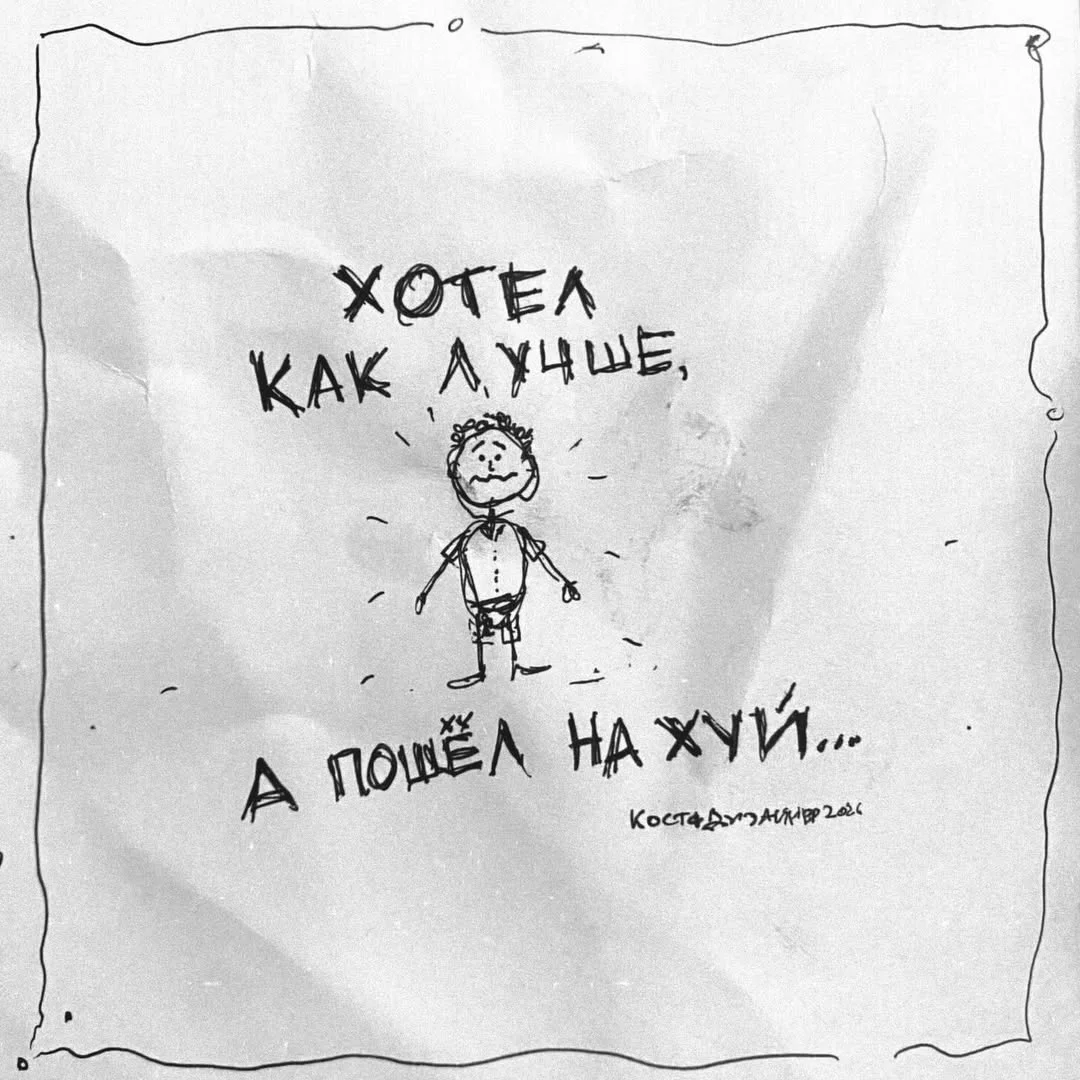 ХОТЕЛ
КАК ЛУЧШЕ,
А ПОШЁЛ НА ХУЙ...
КОСТА ДИЗАЙНЕР 2026